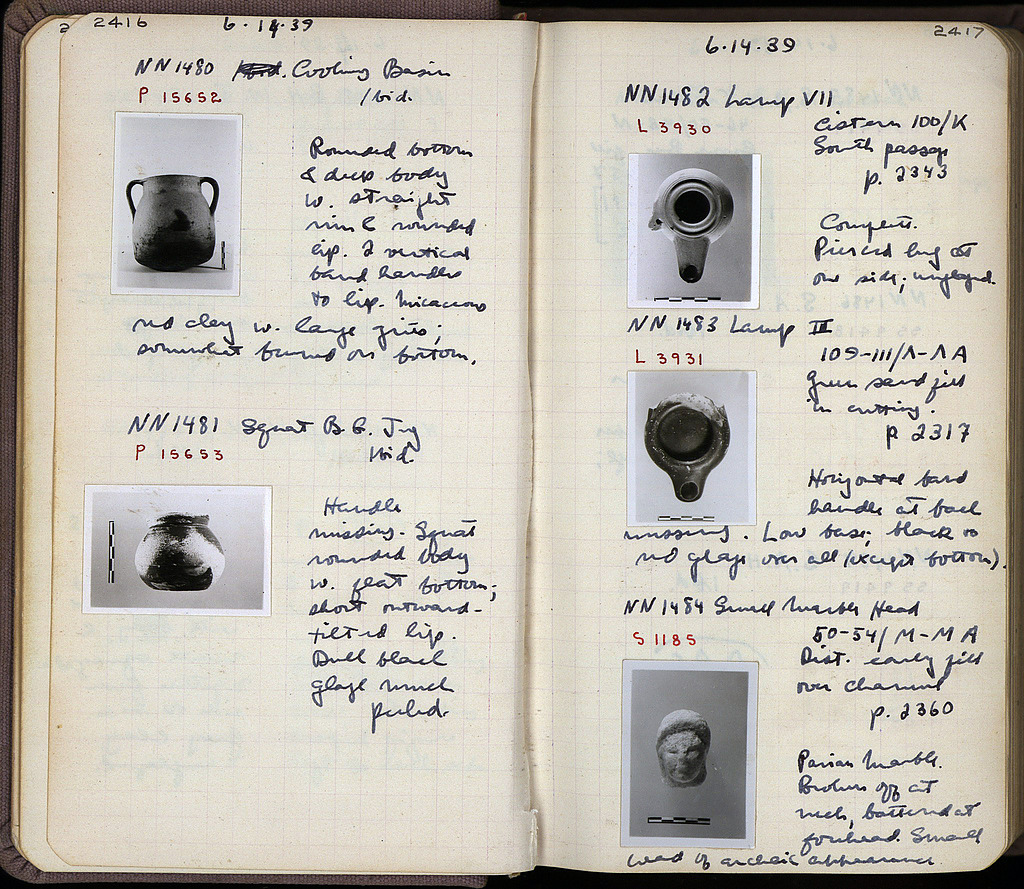 2416
6·14·39
NN1480 Cooking Basin
P 15652
Ibid.
Rounded bottom
& deep body
w. straight
rim & rounded
lip. 2 vertical
band handles
to lip. Micaceous
red clay w. large grits;
somewhat burned on bottom.
NN1481 Squat B.G. Jug
P 15653
Ibid.
Handle
missing. Squat
rounded body
w. flat bottom;
short outward-
tilted lip.
Dull black
glaze much
peeled.
2417
6·14·39
NN1482 Lamp VII
L 3930
Cistern 100/K
South passage
p. 2343
Complete.
Pierced lug at
one side; unglazed.
NN1483 Lamp III
L 3931
109-III/Λ-ΛA
Green sand fill
in cutting.
p 2317
Horizontal band
handle at back
missing. Low base; black to
red glaze over all (except bottom).
NN1484 Small Marble Head
S 1185
50-54/M-MA
Dist. early fill
over channel
p. 2360
Parian marble.
Broken off at
neck, battered at
forehead. Small
head of archaic appearance.